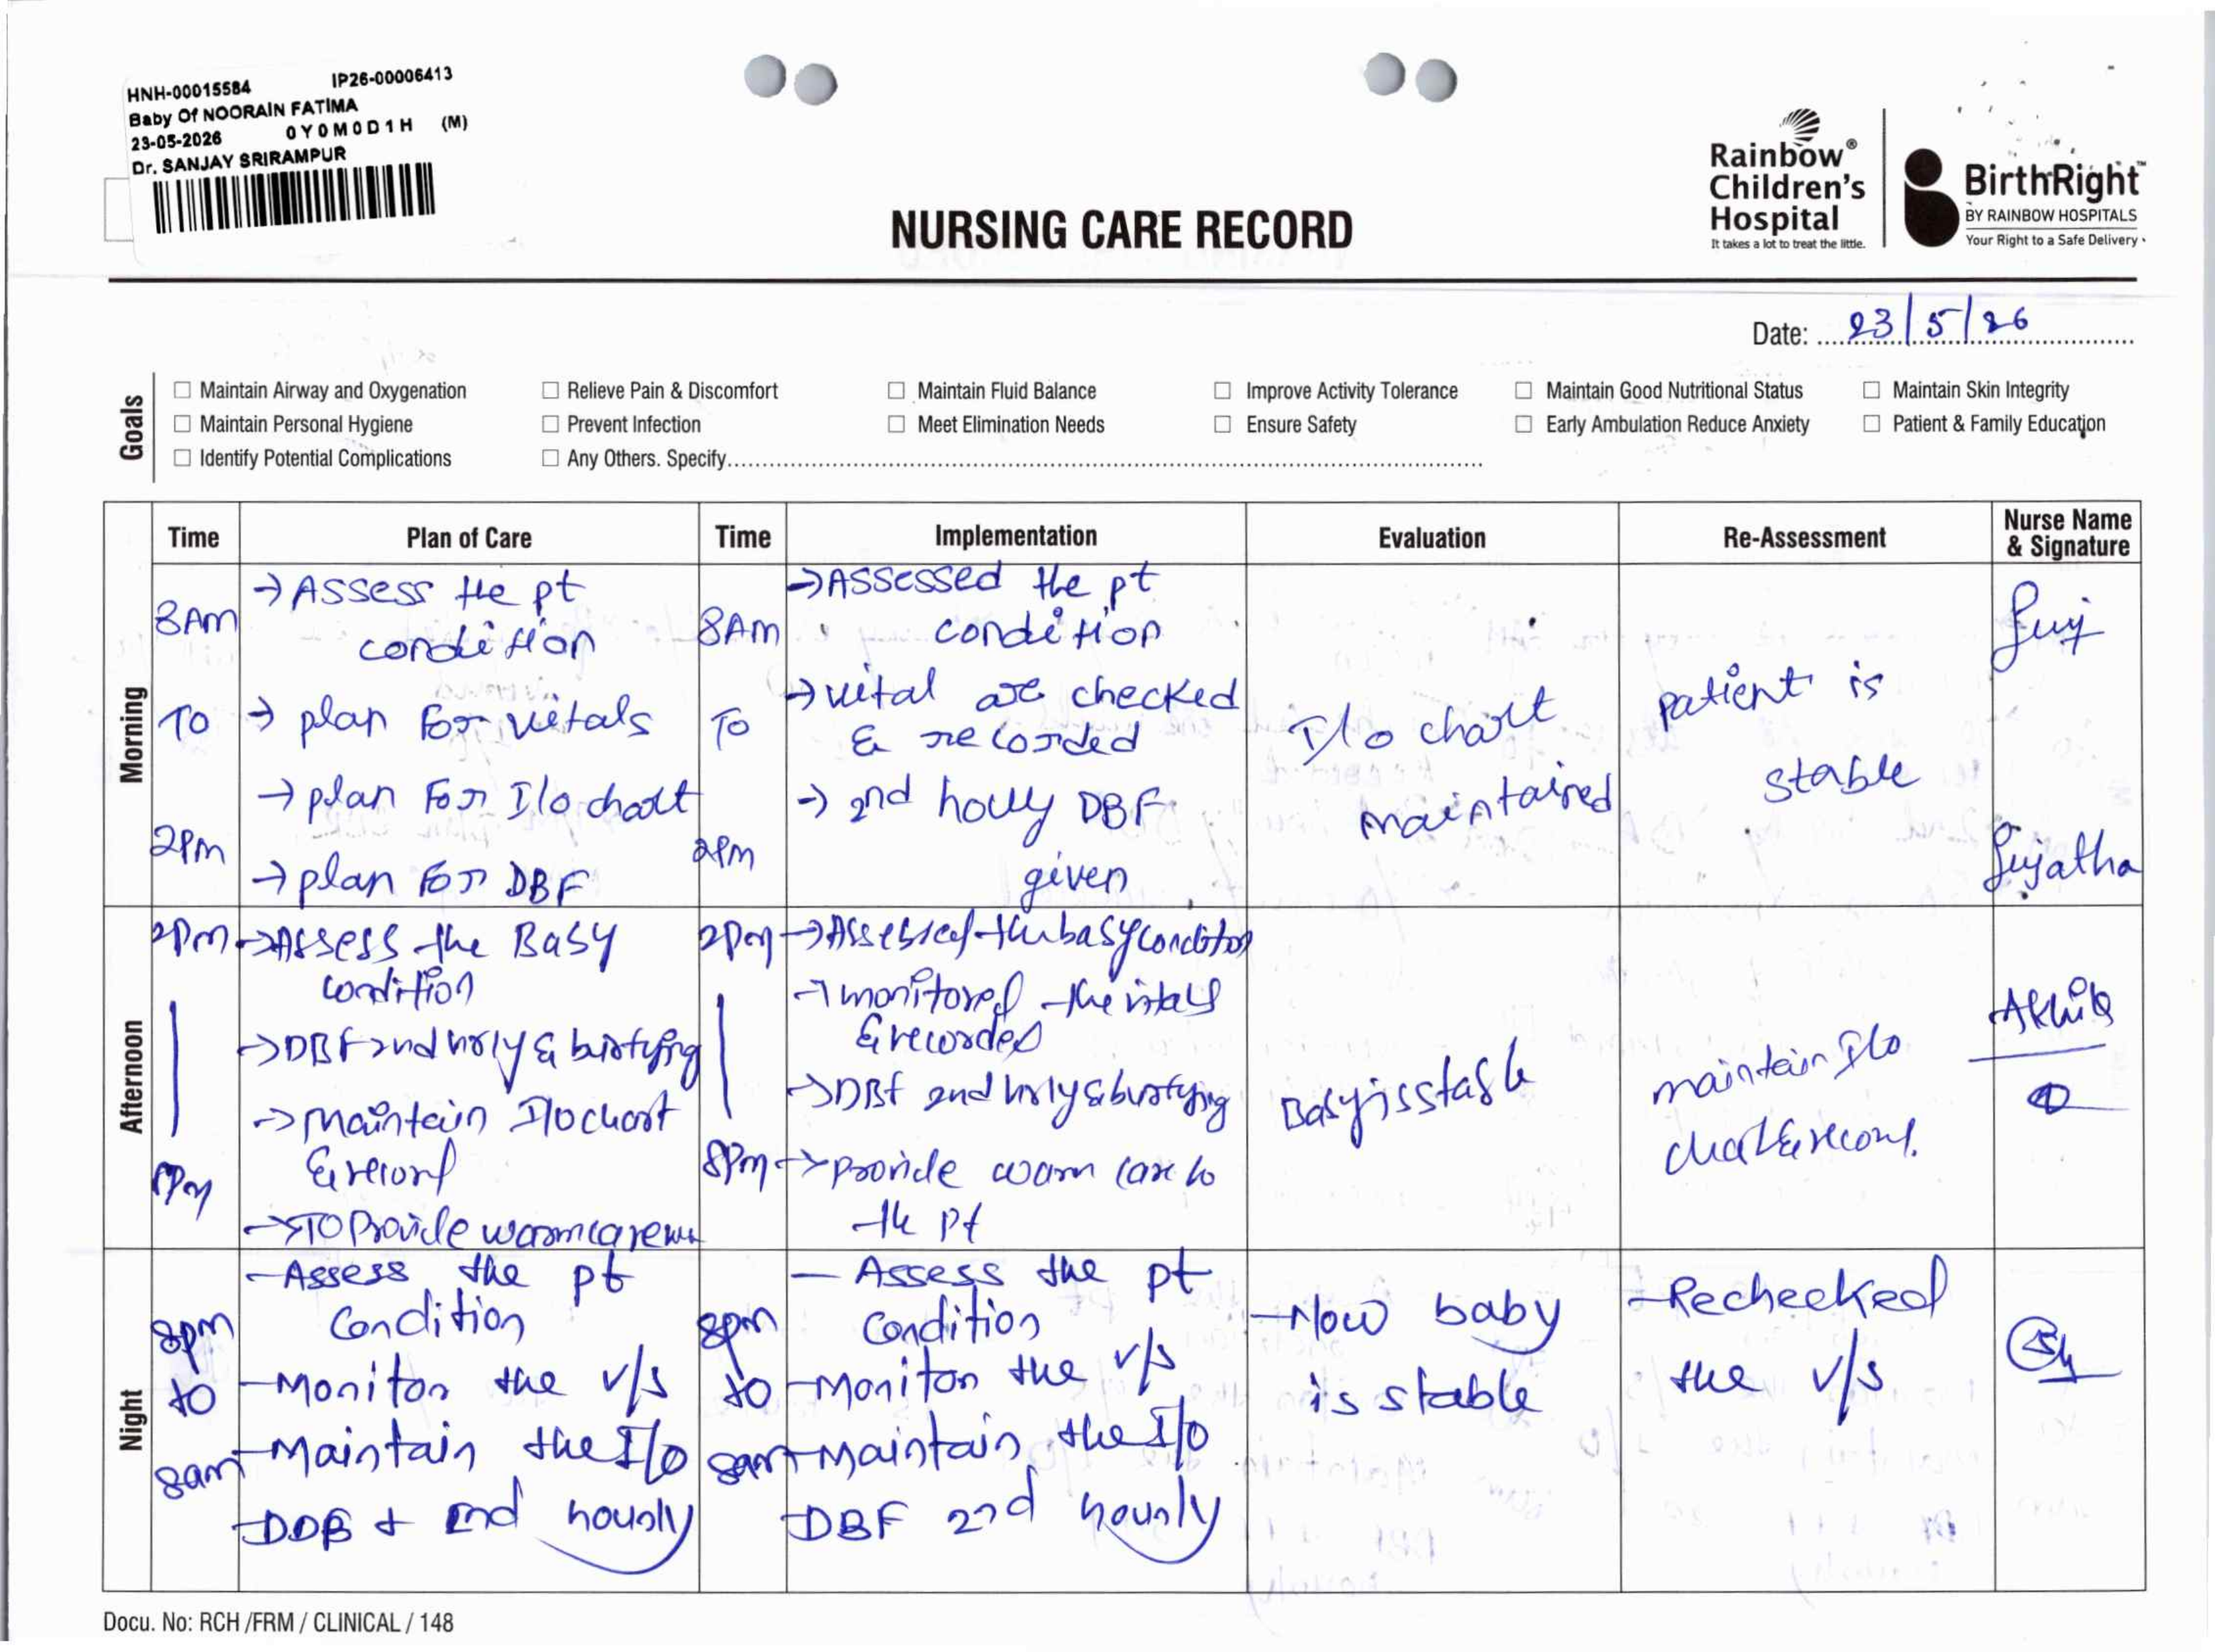 HNH-00015584 IP26-00006413
Baby Of NOORAIN FATIMA
23-05-2026 0Y0M0D1H (M)
Dr. SANJAY SRIRAMPUR
NURSING CARE RECORD
Rainbow®
Children's
Hospital
It takes a lot to treat the little.
BirthRight™
BY RAINBOW HOSPITALS
Your Right to a Safe Delivery
Date: 23/5/26
Goals
☐ Maintain Airway and Oxygenation ☐ Relieve Pain & Discomfort ☐ Maintain Fluid Balance ☐ Improve Activity Tolerance ☐ Maintain Good Nutritional Status ☐ Maintain Skin Integrity
☐ Maintain Personal Hygiene ☐ Prevent Infection ☐ Meet Elimination Needs ☐ Ensure Safety ☐ Early Ambulation Reduce Anxiety ☐ Patient & Family Education
☐ Identify Potential Complications ☐ Any Others. Specify
Time Plan of Care Time Implementation Evaluation Re-Assessment Nurse Name
& Signature
Morning
8Am
To
2Pm
→ Assess the pt
condition
→ plan For vitals
→ plan For I/o chart
→ plan For DBF
8Am
To
2Pm
→ Assessed the pt
condition
→ vital are checked
& recorded
→ 2nd houly DBF
given
I/o chart
maintained
patient is
stable
Suj
Sujatha
Afternoon
2Pm
8Pm
→ Assess the Baby
condition
→ DBF 2nd hrly &
→ Maintain I/o chart
& record
→ To Provide warm care
2Pm
8Pm
→ Assessed the baby condition
→ monitored the vitals
& recorded
→ DBF 2nd hrly &
→ provide warm care to
the pt
Baby is stable
maintain I/o
chart & record.
Night
8pm
to
8am
- Assess the pt
Condition
- Monitor the v/s
- Maintain the I/o
- DDB + 2nd hourly
8pm
to
8am
- Assess the pt
Condition
- Monitor the v/s
- Maintain the I/o
- DBF 2nd hourly
- Now baby
is stable
- Rechecked
the v/s
Docu. No: RCH /FRM / CLINICAL / 148